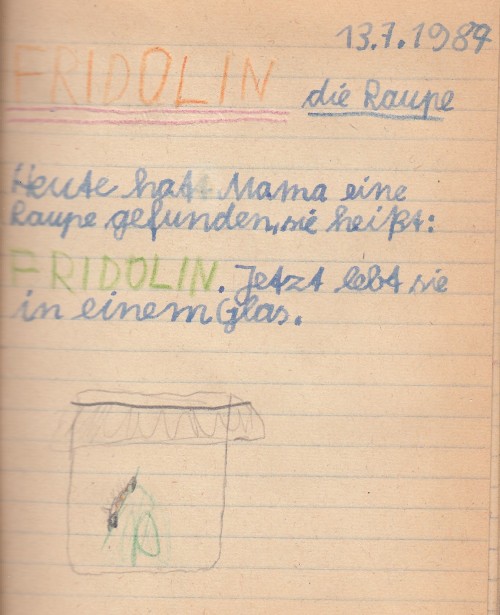 13.7.1984
FRIDOLIN die Raupe
Heute hat Mama eine
Raupe gefunden, sie heißt:
FRIDOLIN. Jetzt lebt sie
in einem Glas.